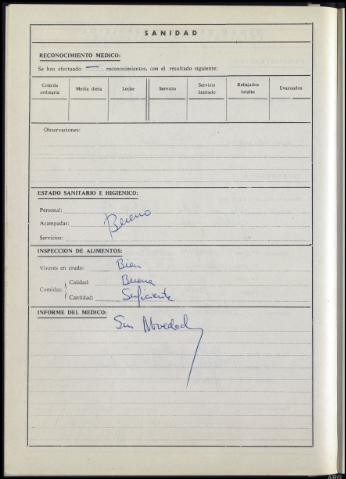 SANIDAD
RECONOCIMIENTO MEDICO:
Se han efectuado — reconocimientos, con el resultado siguiente:
Comida ordinaria Media dieta Leche Servicio Servicio limitado Rebajados totales Evacuados
Observaciones:
ESTADO SANITARIO E HIGIENICO:
Personal:
Acampadas: Bueno
Servicios:
INSPECCION DE ALIMENTOS:
Víveres en crudo: Bien
Comidas: Calidad: Buena
Cantidad: Suficiente
INFORME DEL MEDICO: Sin Novedad